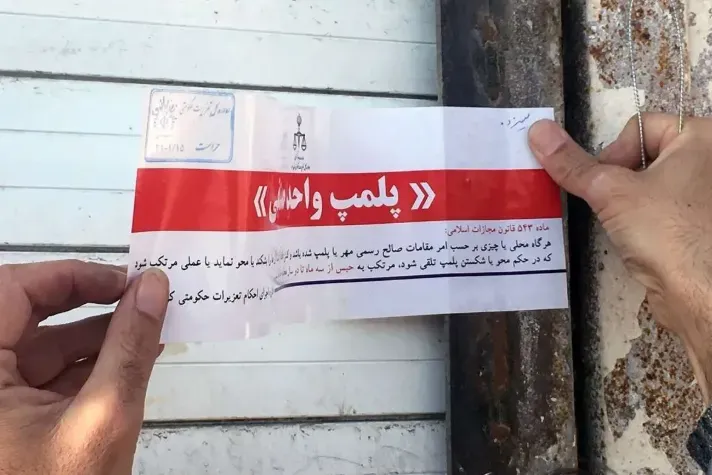 حراست
« پلمپ واحد »
ماده ۵۴۳ قانون مجازات اسلامی:
هرگاه محلی یا چیزی بر حسب امر مقامات صالح رسمی مهر یا پلمپ شده باشد و را بشکند یا محو نماید یا عملی مرتکب شود
که در حکم محو یا شکستن پلمپ تلقی شود، مرتکب به حبس از سه ماه تا دو
اجرای احکام تعزیرات حکومتی